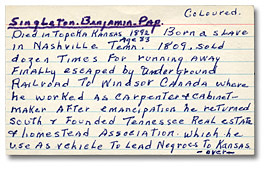 Coloured.
Singleton. Benjamin. Pap.
Died in Topeka Kansas 1892 Born a slave
age 83
in Nashville Tenn. 1809, sold
dozen Times For running away
Finally escaped by Underground
Railroad To Windsor Canada where
he worked as Carpenter & cabinet-
maker After emancipation he returned
South & Founded Tennessee Real estate
& Homestead Association. Which he
use as vehicle To Lead Negroes To Kansas.
-over-